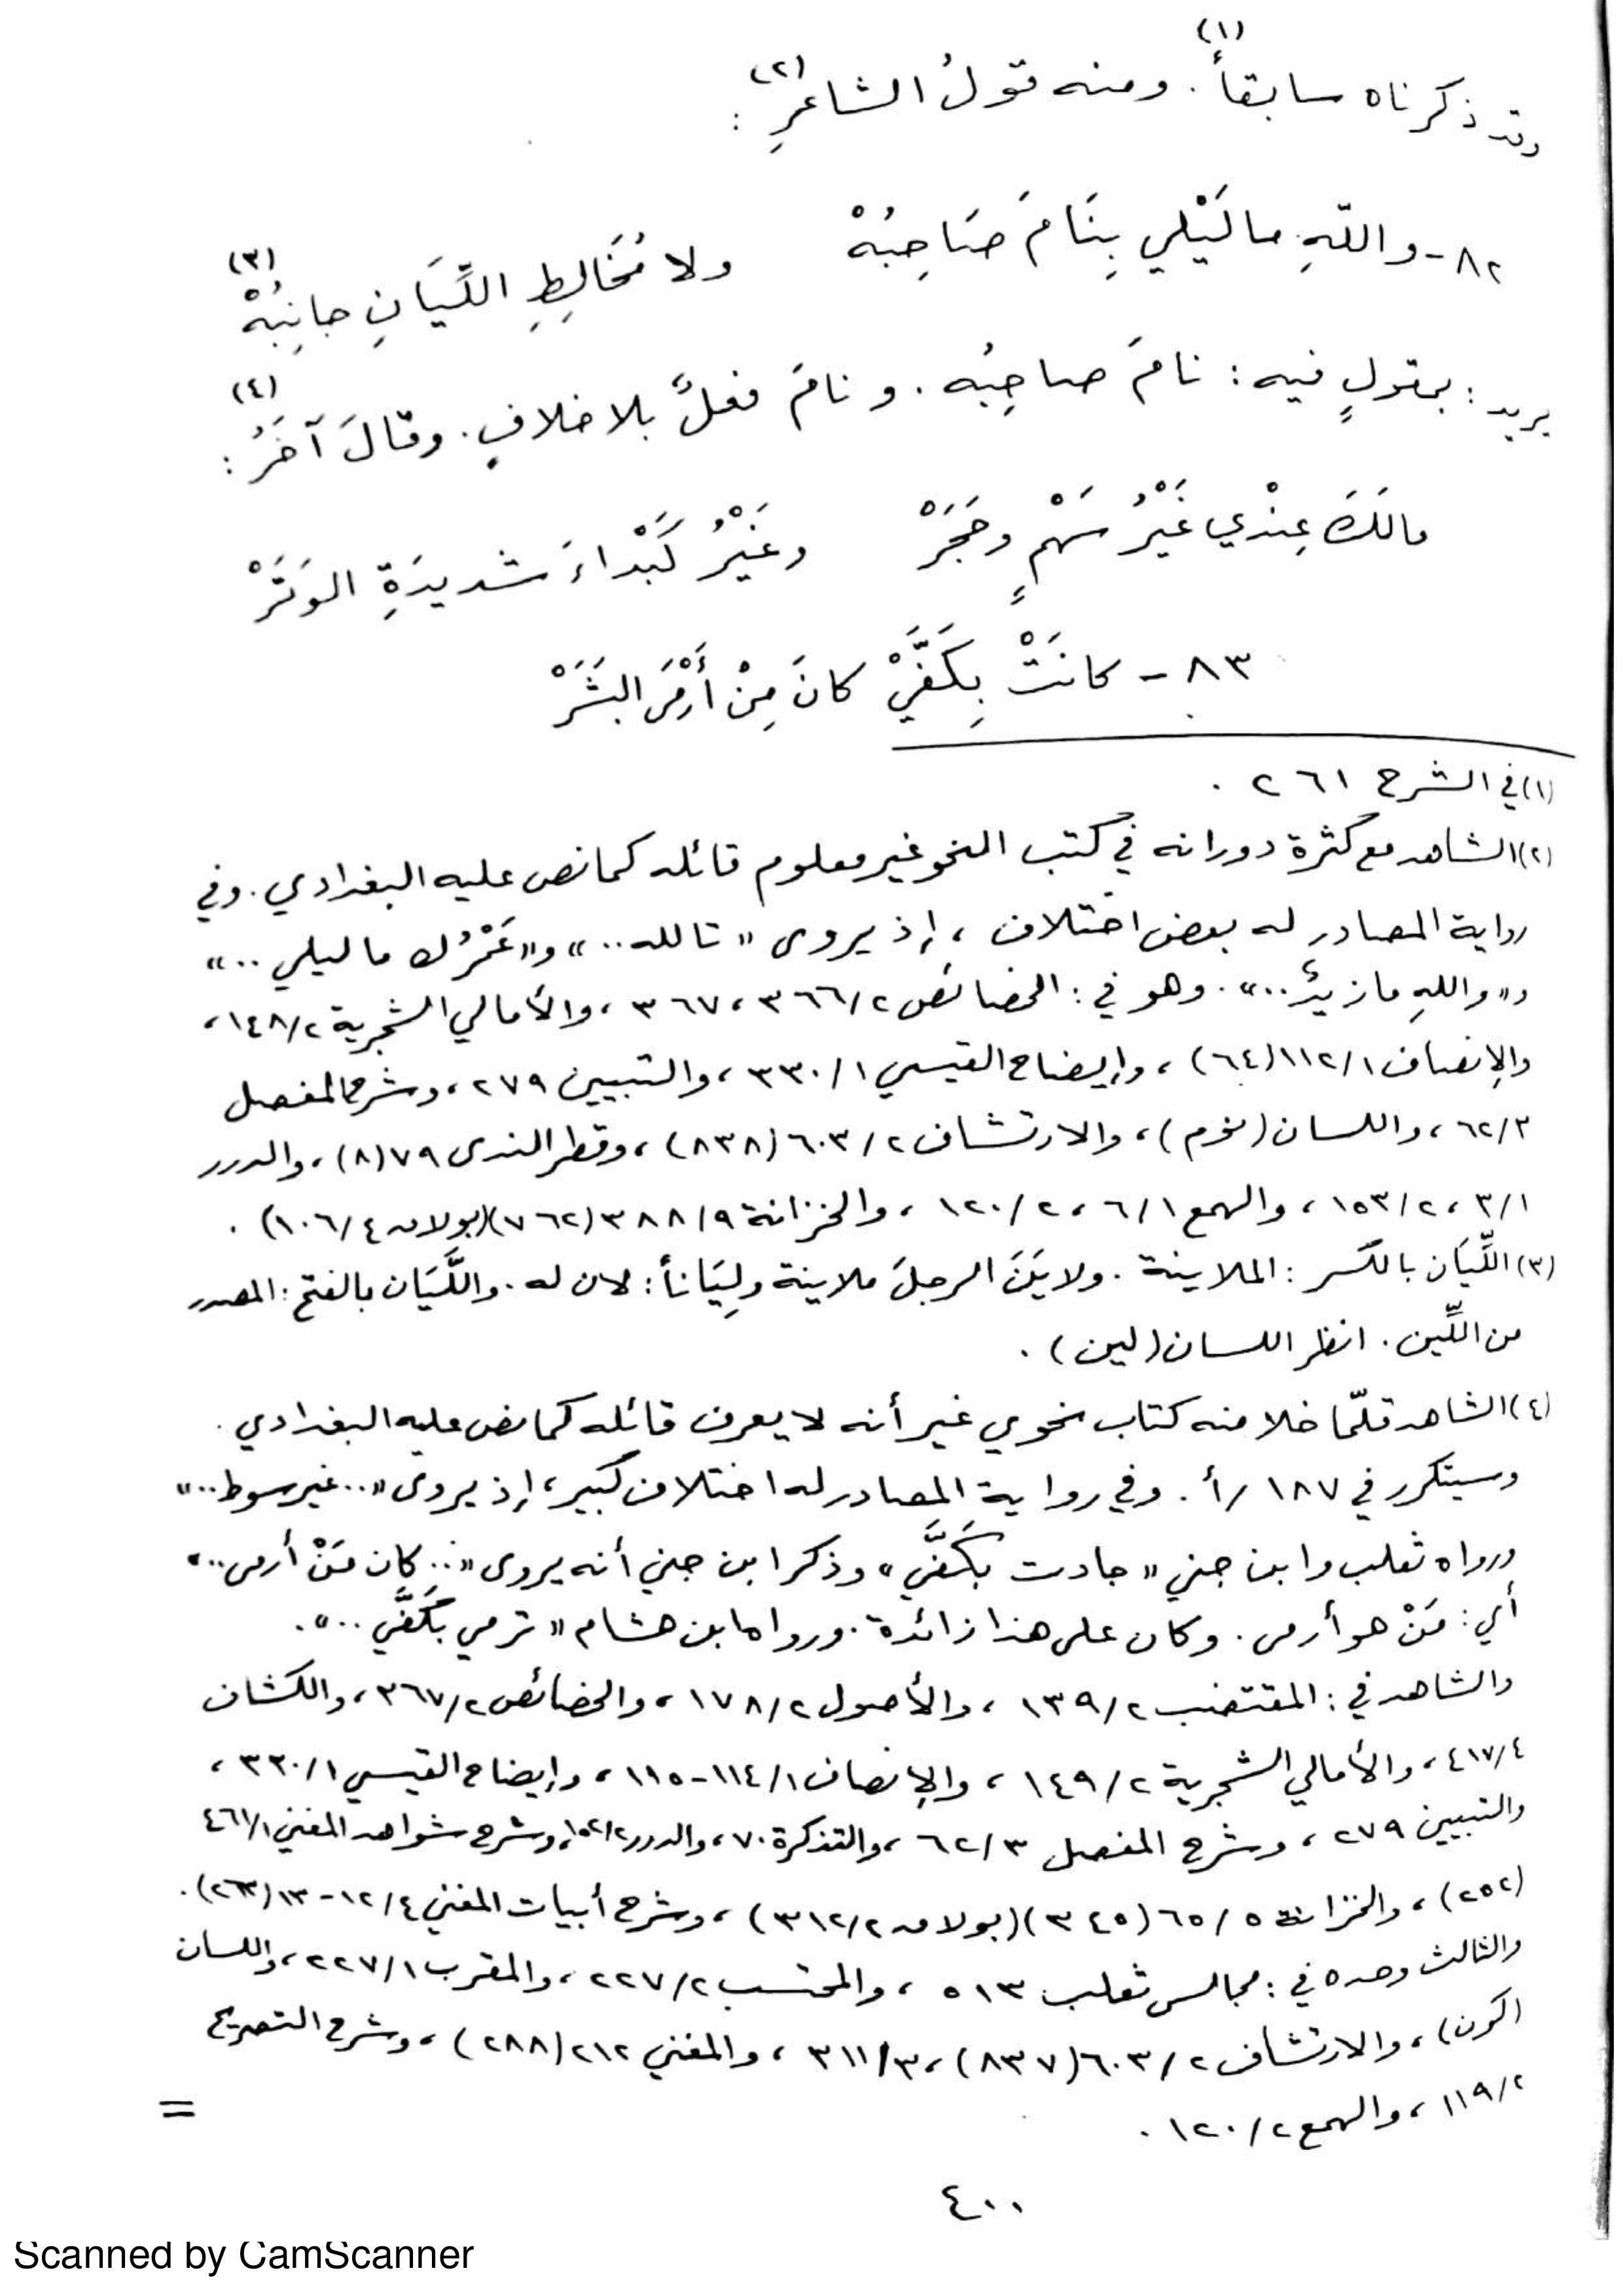 وقد ذكرناه سابقاً(١). ومنه قولُ الشاعرِ(٢):
٨٢- واللّهِ ما لَيْلي بِنَامَ صَاحِبُهْ ولا مُخَالِطِ اللَّيَانِ جانِبُهْ(٣)
يريد: بمقولٍ فيه: نامَ صاحِبُه. ونامَ فعلٌ بلا خلافٍ. وقالَ آخَرُ(٤):
مالَكَ عِنْدي غَيْرُ سَهْمٍ وحَجَرْ وغَيْرُ كَبْداءَ شديدَةِ الوَتَرْ
٨٣- كانَتْ بِكَفَّيْ كانَ مِنْ أَرْمَى البَشَرْ
(١) في الشرح ٢٦١.
(٢) الشاهد مع كثرة دورانه في كتب النحو غير معلوم قائله كما نص عليه البغدادي. وفي
رواية المصادر له بعض اختلاف، إذ يروى «تالله..» و«عَمْرُك ما ليلي..»
و«واللهِ ما زيدٌ..». وهو في: الخصائص ٢/٣٦٦، ٣٦٧، والأمالي الشجرية ٢/١٤٨،
والإنصاف ١/١١٢ (٦٤)، وإيضاح القيسي ١/٣٣٠، والتبيين ٢٧٩، وشرح المفصل
٣/٦٢، واللسان (نوم)، والارتشاف ٢/٦٠٣ (٨٣٨)، وقطر الندى ٧٩ (٨)، والدرر
١/٣، ٢/١٥٣، والهمع ١/٦، ٢/١٢٠، والخزانة ٩/٣٨٨ (٧٦٢) (بولاق ٤/١٠٦).
(٣) اللِّيَان بالكسر: الملاينة. ولايَنَ الرجلَ ملاينة ولِيَاناً: لان له. واللَّيَان بالفتح: المصدر
من اللِّين. انظر اللسان (لين).
(٤) الشاهد قلّما خلا منه كتاب نحوي غير أنه لا يعرف قائله كما نص عليه البغدادي.
وسيتكرر في ١٨٧/أ. وفي رواية المصادر له اختلاف كبير، إذ يروى «..غير سوط..»
ورواه ثعلب وابن جني «جادت بكَفَّي» وذكر ابن جني أنه يروى «..كان مَنْ أرمى..»
أي: مَنْ هو أرمى. وكان على هذا زائدة. ورواها بن هشام «ترمي بكَفَّي..».
والشاهد في: المقتضب ٢/١٣٩، والأصول ٢/١٧٨، والخصائص ٢/٣٦٧، والكشاف
٤/٤١٧، والأمالي الشجرية ٢/١٤٩، والإنصاف ١/١١٤-١١٥، وإيضاح القيسي ١/٣٣٠،
والتبيين ٢٧٩، وشرح المفصل ٣/٦٢، والتذكرة ٧٠، والدرر ٢/١٥٢، وشرح شواهد المغني ١/٤٦١
(٢٥٢)، والخزانة ٥/٦٥ (٣٤٥) (بولاق ٢/٣١٢)، وشرح أبيات المغني ٤/١٢-١٣ (٢٦٣).
والثالث وحده في: مجالس ثعلب ٥١٣، والمحتسب ٢/٢٢٧، والمقرب ١/٢٢٧، واللسان
(كون)، والارتشاف ٢/٦٠٣ (٨٣٧)، ٣/٣١١، والمغني ٢١٢ (٢٨٨)، وشرح التصريح
٢/١١٩، والهمع ٢/١٢٠.
=
٤٠٠
Scanned by CamScanner